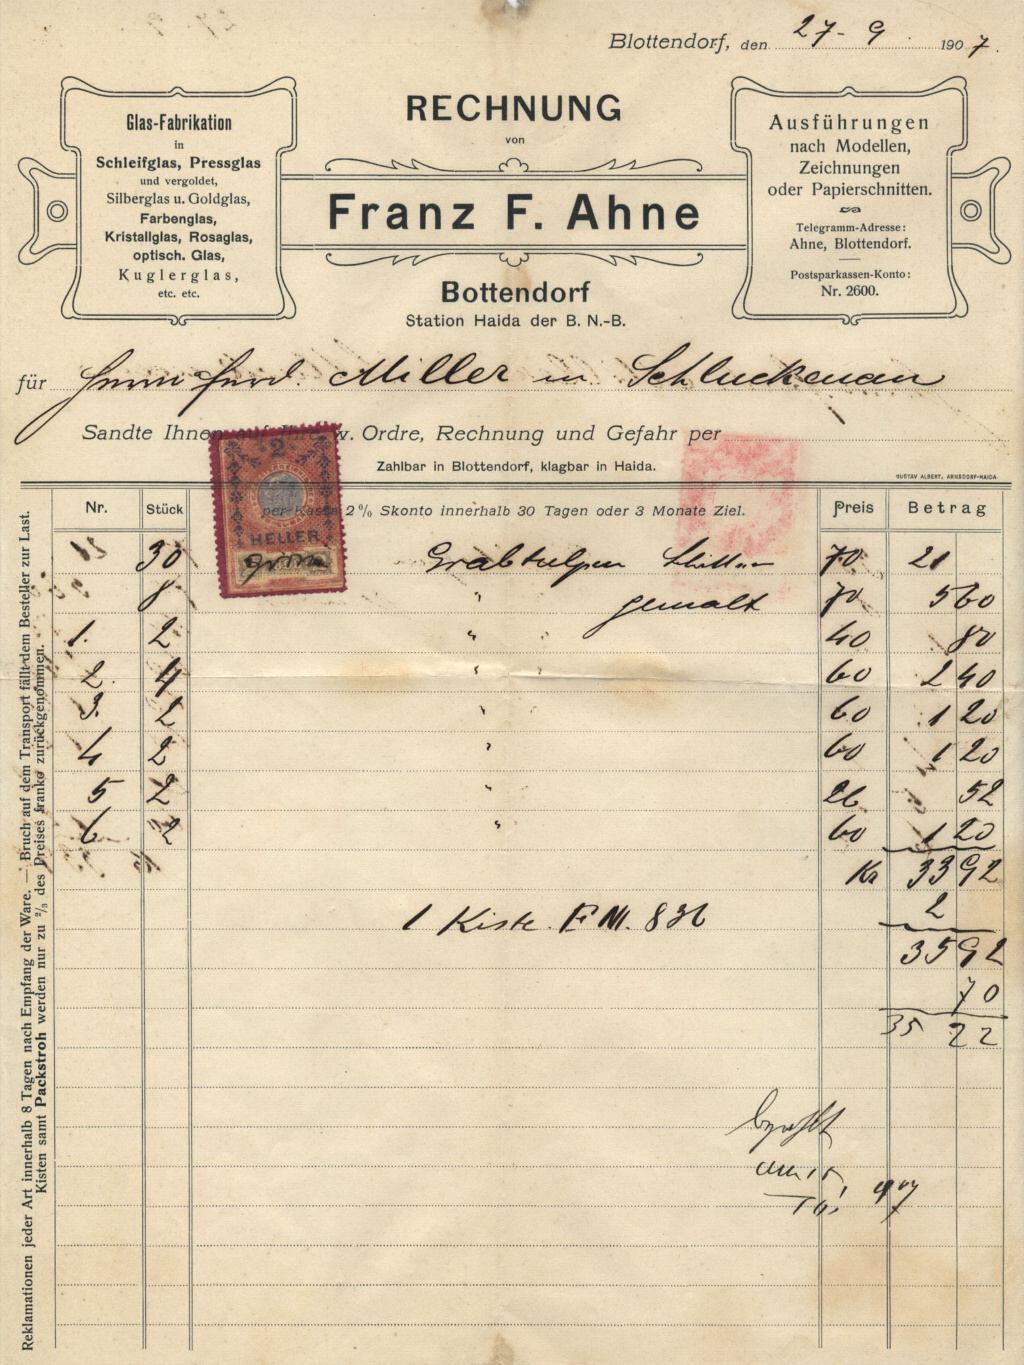 Blottendorf, den 27-9. 1907.
Glas-Fabrikation
in
Schleifglas, Pressglas
und vergoldet,
Silberglas u. Goldglas,
Farbenglas,
Kristallglas, Rosaglas,
optisch. Glas,
Kuglerglas,
etc. etc.
RECHNUNG
von
Franz F. Ahne
Bottendorf
Station Haida der B. N.-B.
Ausführungen
nach Modellen,
Zeichnungen
oder Papierschnitten.
Telegramm-Adresse:
Ahne, Blottendorf.
Postsparkassen-Konto:
Nr. 2600.
für Herrn Ferd. Miller in Schluckenau
Sandte Ihnen auf Ihre w. Ordre, Rechnung und Gefahr per
Zahlbar in Blottendorf, klagbar in Haida.
GUSTAV ALBERT, ARNSDORF-HAIDA
2
HELLER
Nr. Stück per Kassa 2% Skonto innerhalb 30 Tagen oder 3 Monate Ziel. Preis Betrag
30 Grabtulpen 70 21
8. " gemalt 70 5 60
1. 2 " " 40 80
2. 4 " " 60 2 40
3. 2 " " 60 1 20
4 2 " 60 1 20
5 2 " " 26 52
6 2 " 60 1 20
Kr 33 92
1 Kiste. F M. 836 2
35 92
70
35 22
bezahlt
am 15
Reklamationen jeder Art innerhalb 8 Tagen nach Empfang der Ware. — Bruch auf dem Transport fällt dem Besteller zur Last.
Kisten samt Packstroh werden nur zu 2/3 des Preises franko zurückgenommen.